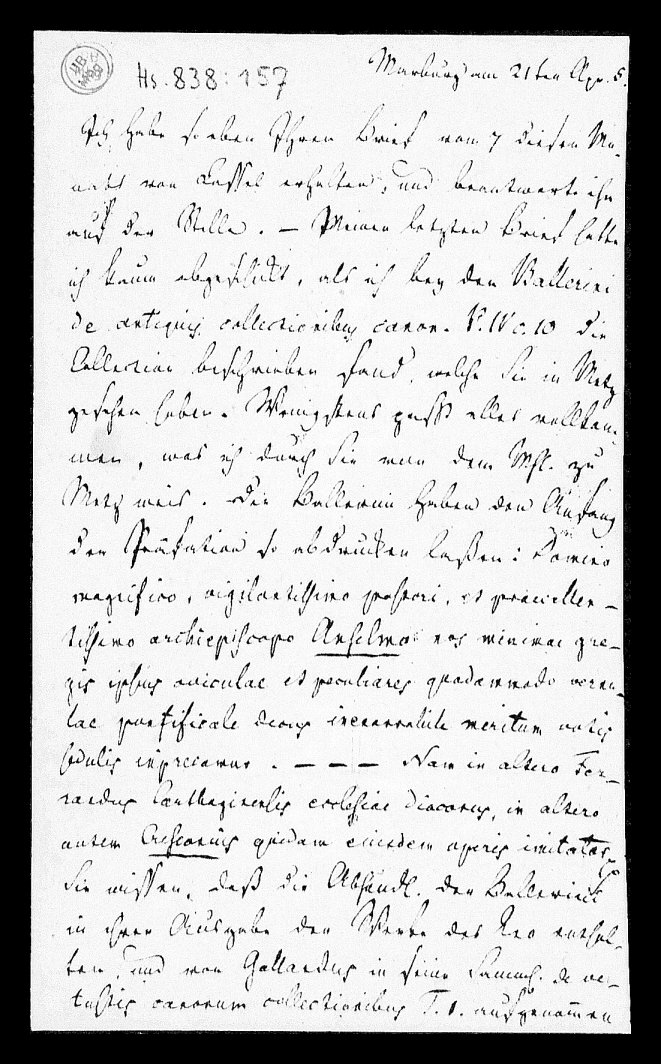 Hs. 838:157
Marburg am 21ten Apr. 5.
Ich habe so eben Ihren Brief vom 7 diesen Mo-
nats von Cassel erhalten, und beantworte ihn
auf der Stelle. — Meinen letzten Brief hatte
ich kaum abgeschickt, als ich bey den Ballerini
de antiquis collectionibus canon. P. IV c. 10 die
Collection beschrieben fand, welche Sie in Metz
gesehen haben. Wenigstens passt alles vollkom-
men, was ich durch Sie von dem Mst. zu
Metz weis. Die Ballerini haben den Anfang
der Präfation so abdrucken laßen: Domino
magnifico, vigilantissimo pastori, et praecellen-
tissimo archiepiscopo Anselmo nos minimae gre-
gis ipsius oviculae et peculiares quodammodo vernu-
lae pontificale decus inenarrabile meritum votis
sedulis imprecamur. — — — Nam in altero Fer-
randus Carthaginensis ecclesiae diaconus, in altero
autem Cresconius quidam eiusdem operis imitator
Sie wissen, daß die Abhandl. der Ballerini
in ihrer Ausgabe der Werke des Leo enthal-
ten, und von Gallandus in seine Samml. de ve-
tustis canonum collectionibus T. 1. aufgenommen